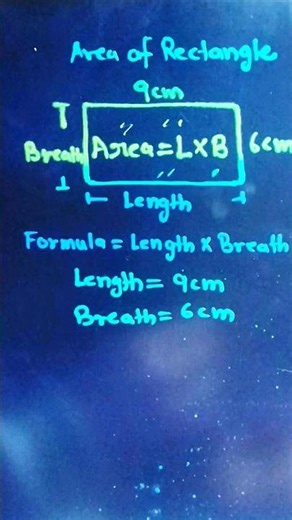 Area of Rectangle
9cm
Breath
Area = L x B
6cm
Length
Formula = Length x Breath
Length = 9cm
Breath = 6cm